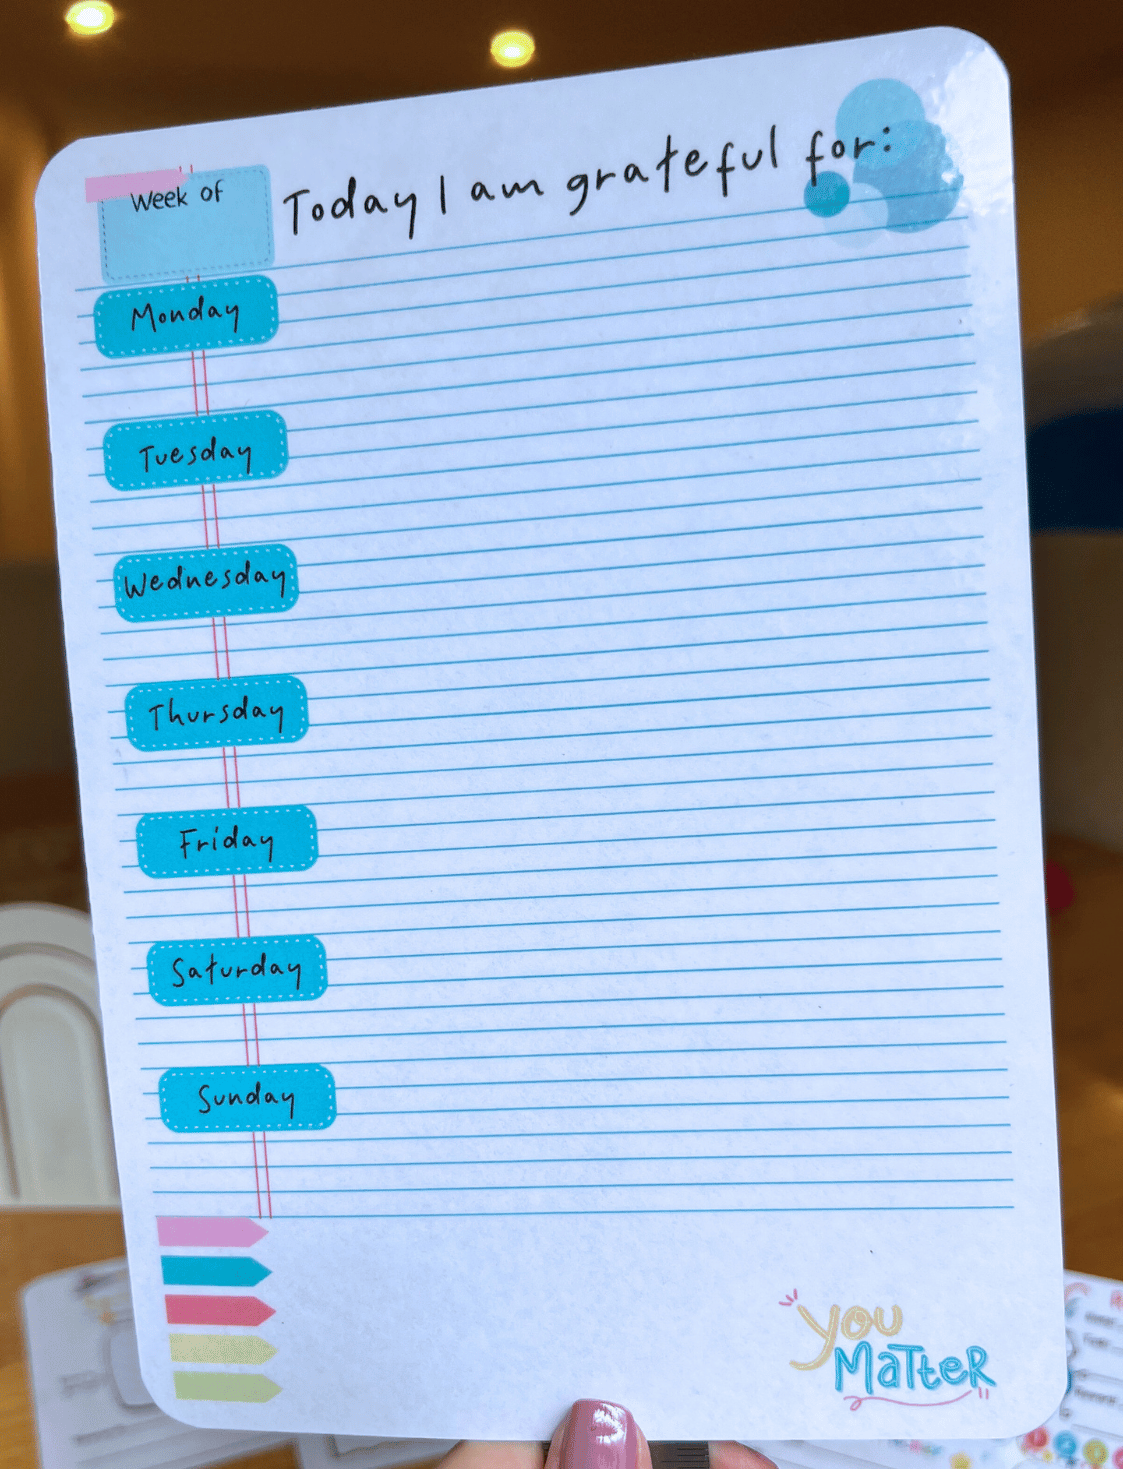 Week of
Today I am grateful for:
Monday
Tuesday
Wednesday
Thursday
Friday
Saturday
Sunday
You
MaTteR